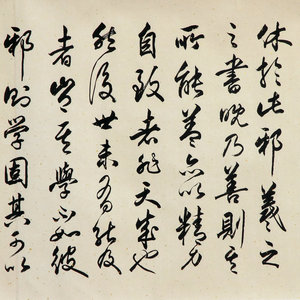 休於此邪羲之
之書晚乃善則其
所能蓋亦以精力
自致者非天成也
然後世未有能及
者豈其學不如彼
邪則学固其可以